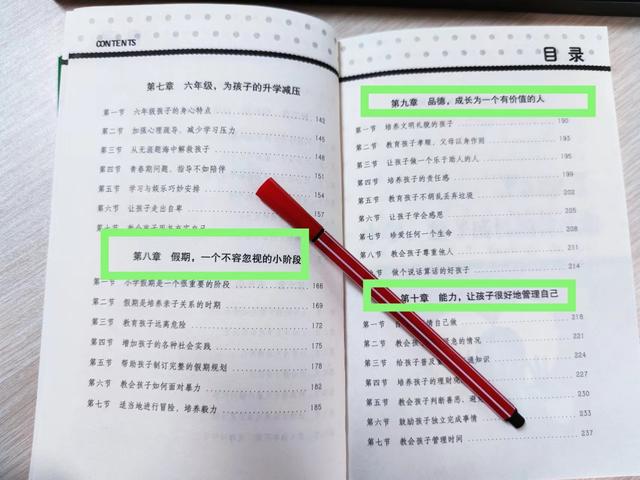 CONTENTS
第七章 六年级，为孩子的升学减压
第一节 六年级孩子的身心特点 142
第二节 加强心理疏导，减少学习压力 145
第三节 从无涯题海中解救孩子 148
第四节 青春期问题，指导不如陪伴 151
第五节 学习与娱乐巧妙安排 154
第六节 让孩子走出自卑 157
第八章 假期，一个不容忽视的小阶段
第一节 小学假期是一个很重要的阶段 166
第二节 假期是培养亲子关系的时期 169
第三节 教育孩子远离危险 172
第四节 增加孩子的各种社会实践 175
第五节 帮助孩子制订完整的假期规划 178
第六节 教会孩子如何面对暴力 182
第七节 适当地进行冒险，培养毅力 185
目录
第九章 品德，成长为一个有价值的人
第一节 培养文明礼貌的孩子 190
第二节 教育孩子孝顺，父母以身作则 193
第三节 让孩子做一个乐于助人的人 195
第四节 培养孩子的责任感 199
第五节 教育孩子不胡乱丢弃垃圾 202
第六节 让孩子学会感恩 205
第七节 珍爱任何一个生命 208
第八节 教会孩子尊重他人 211
做个说话算话的好孩子 214
第十章 能力，让孩子很好地管理自己
第一节 情自己做 218
第二节 教会孩 急的情况 221
第三节 给孩子普及 通知识 224
第四节 培养孩子的理财 227
第五节 教会孩子判断善恶， 230
第六节 鼓励孩子独立完成事情 233
第七节 教会孩子管理时间 237